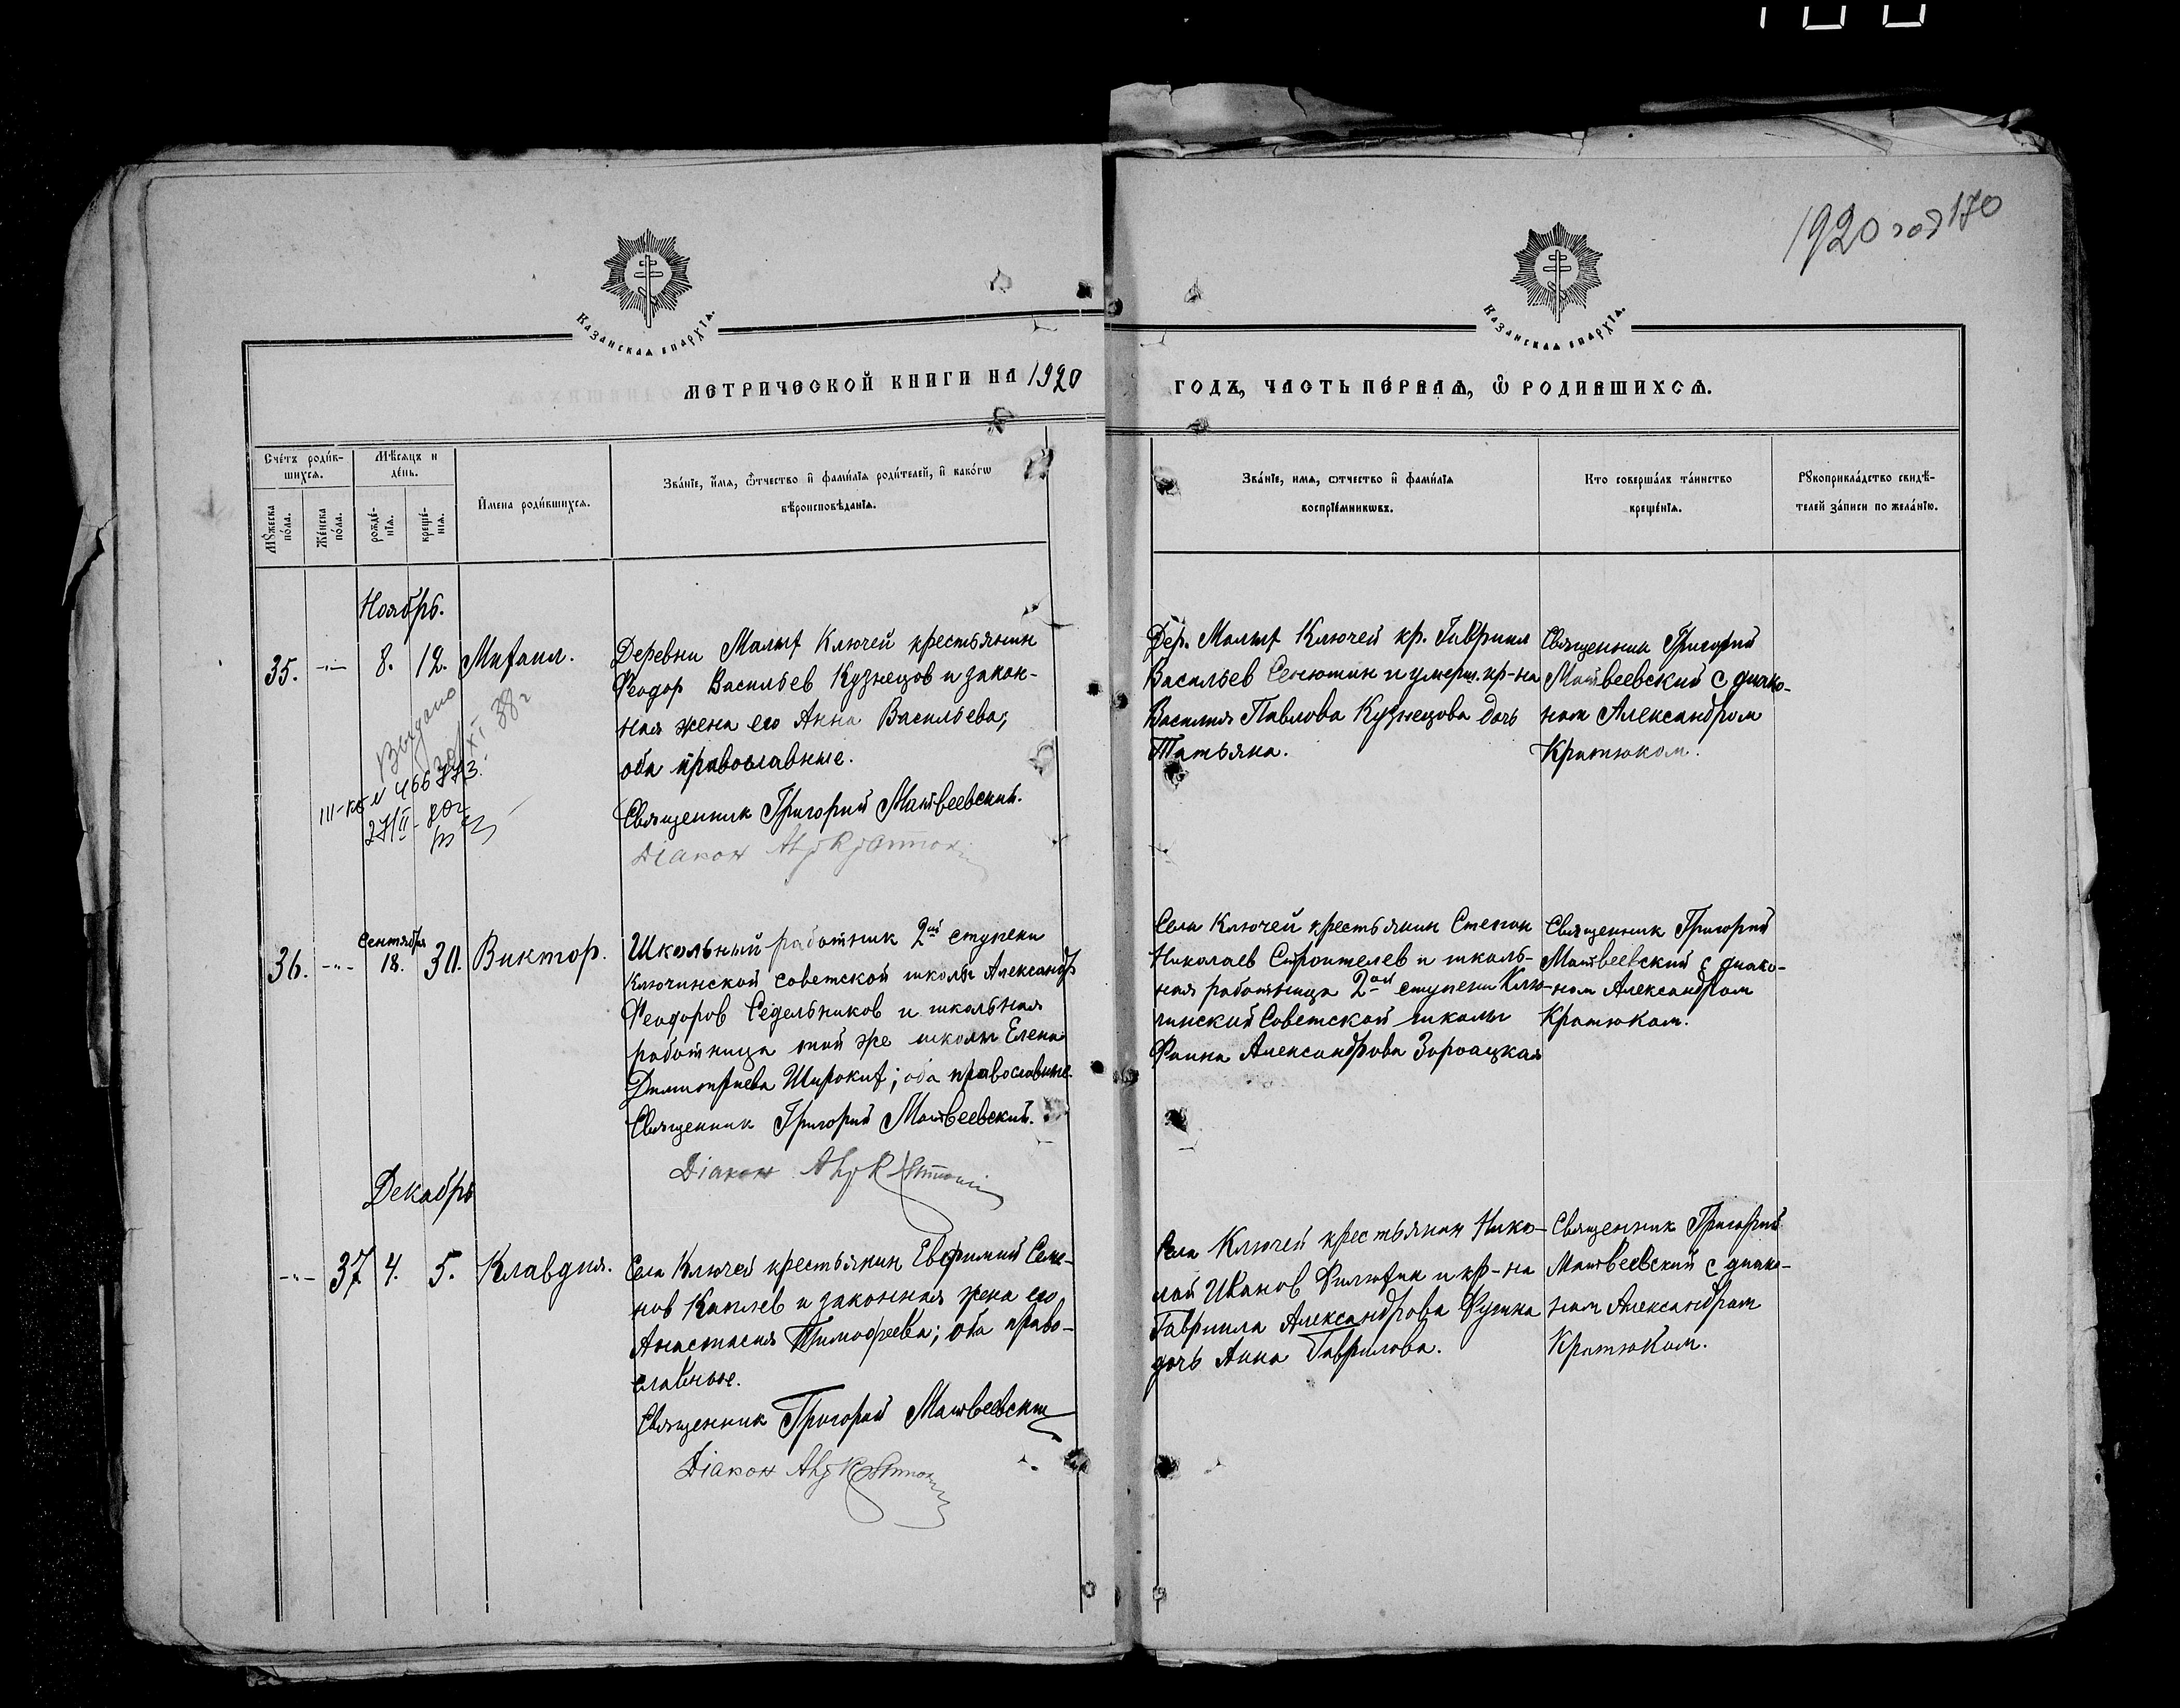 1920 год 170
Казанская епархїѧ.
Казанская епархїѧ.
МЕТРИЧЕСКОЙ КНИГИ НА 1920
ГОДЪ, ЧАСТЬ ПЕ́РВАЯ, Ѿ РОДИВШИХСѦ.
Сче́тъ роди́вшихся.
Мꙋ́жеска по́ла.
Же́нска по́ла.
Мѣ́сяцъ и де́нь.
рожде́нїѧ.
креще́нїѧ.
И҆мена роди́вшихсѧ.
Зва́нїе, и҆́мѧ, ѿтчество и҆ фами́лїѧ роди́телей, и҆ како́гѡ
вѣ́роисповѣ́данїѧ.
Зва́нїе, имѧ, ѡтчество и҆ фами́лїѧ
воспрїе́мникѡвъ.
Кто соверша́лъ та́инство
креще́нїѧ.
Рꙋкоприкла́дство свидѣ́-
телей за́писи по жела́нїю.
Ноябрь.
35. -"- 8. 12. Михаил.
Деревни Малых Ключей крестьянин
Феодор Васильев Кузнецов и закон-
ная жена его Анна Васильева;
оба православные.
Священник Григорий Матвеевский.
Дїакон
Выдано
30/XI 38 г
III-кб N 466773.
27/II - 80г
Дер. Малых Ключей кр. Гавриил
Васильев Сенютин и умерш. кр-на
Василия Павлова Кузнецова дочь
Татьяна.
Священник Григорий
Матвеевский с диако-
ном Александром
Кратюком.
36. -"- Сентября 18. 30. Виктор.
Школьный работник 2ой ступени
Ключинской советской школы Александр
Феодоров Седельников и школьная
работница той же школы Елена
Димитриева Широких; оба православные.
Священник Григорий Матвеевский.
Дїакон
Села Ключей крестьянин Степан
Николаев Строителев и школь-
ная работница 2ой ступени Клю-
чинской Советской школы
Фаина Александрова
Священник Григорий
Матвеевский с диако-
ном Александром
Кратюком.
Декабрь
-"- 37 4. 5. Клавдия.
Села Ключей крестьянин Евфимий Семе-
нов Каплев и законная жена его
Анастасия Тимофеева; оба право-
славные.
Священник Григорий Матвеевский
Дїакон
Села Ключей крестьянин Нико-
лай Иванов Филюхин и кр-на
Гавриила Александрова
дочь Анна Гаврилова.
Священник Григорий
Матвеевский с диако-
ном Александром
Кратюком.